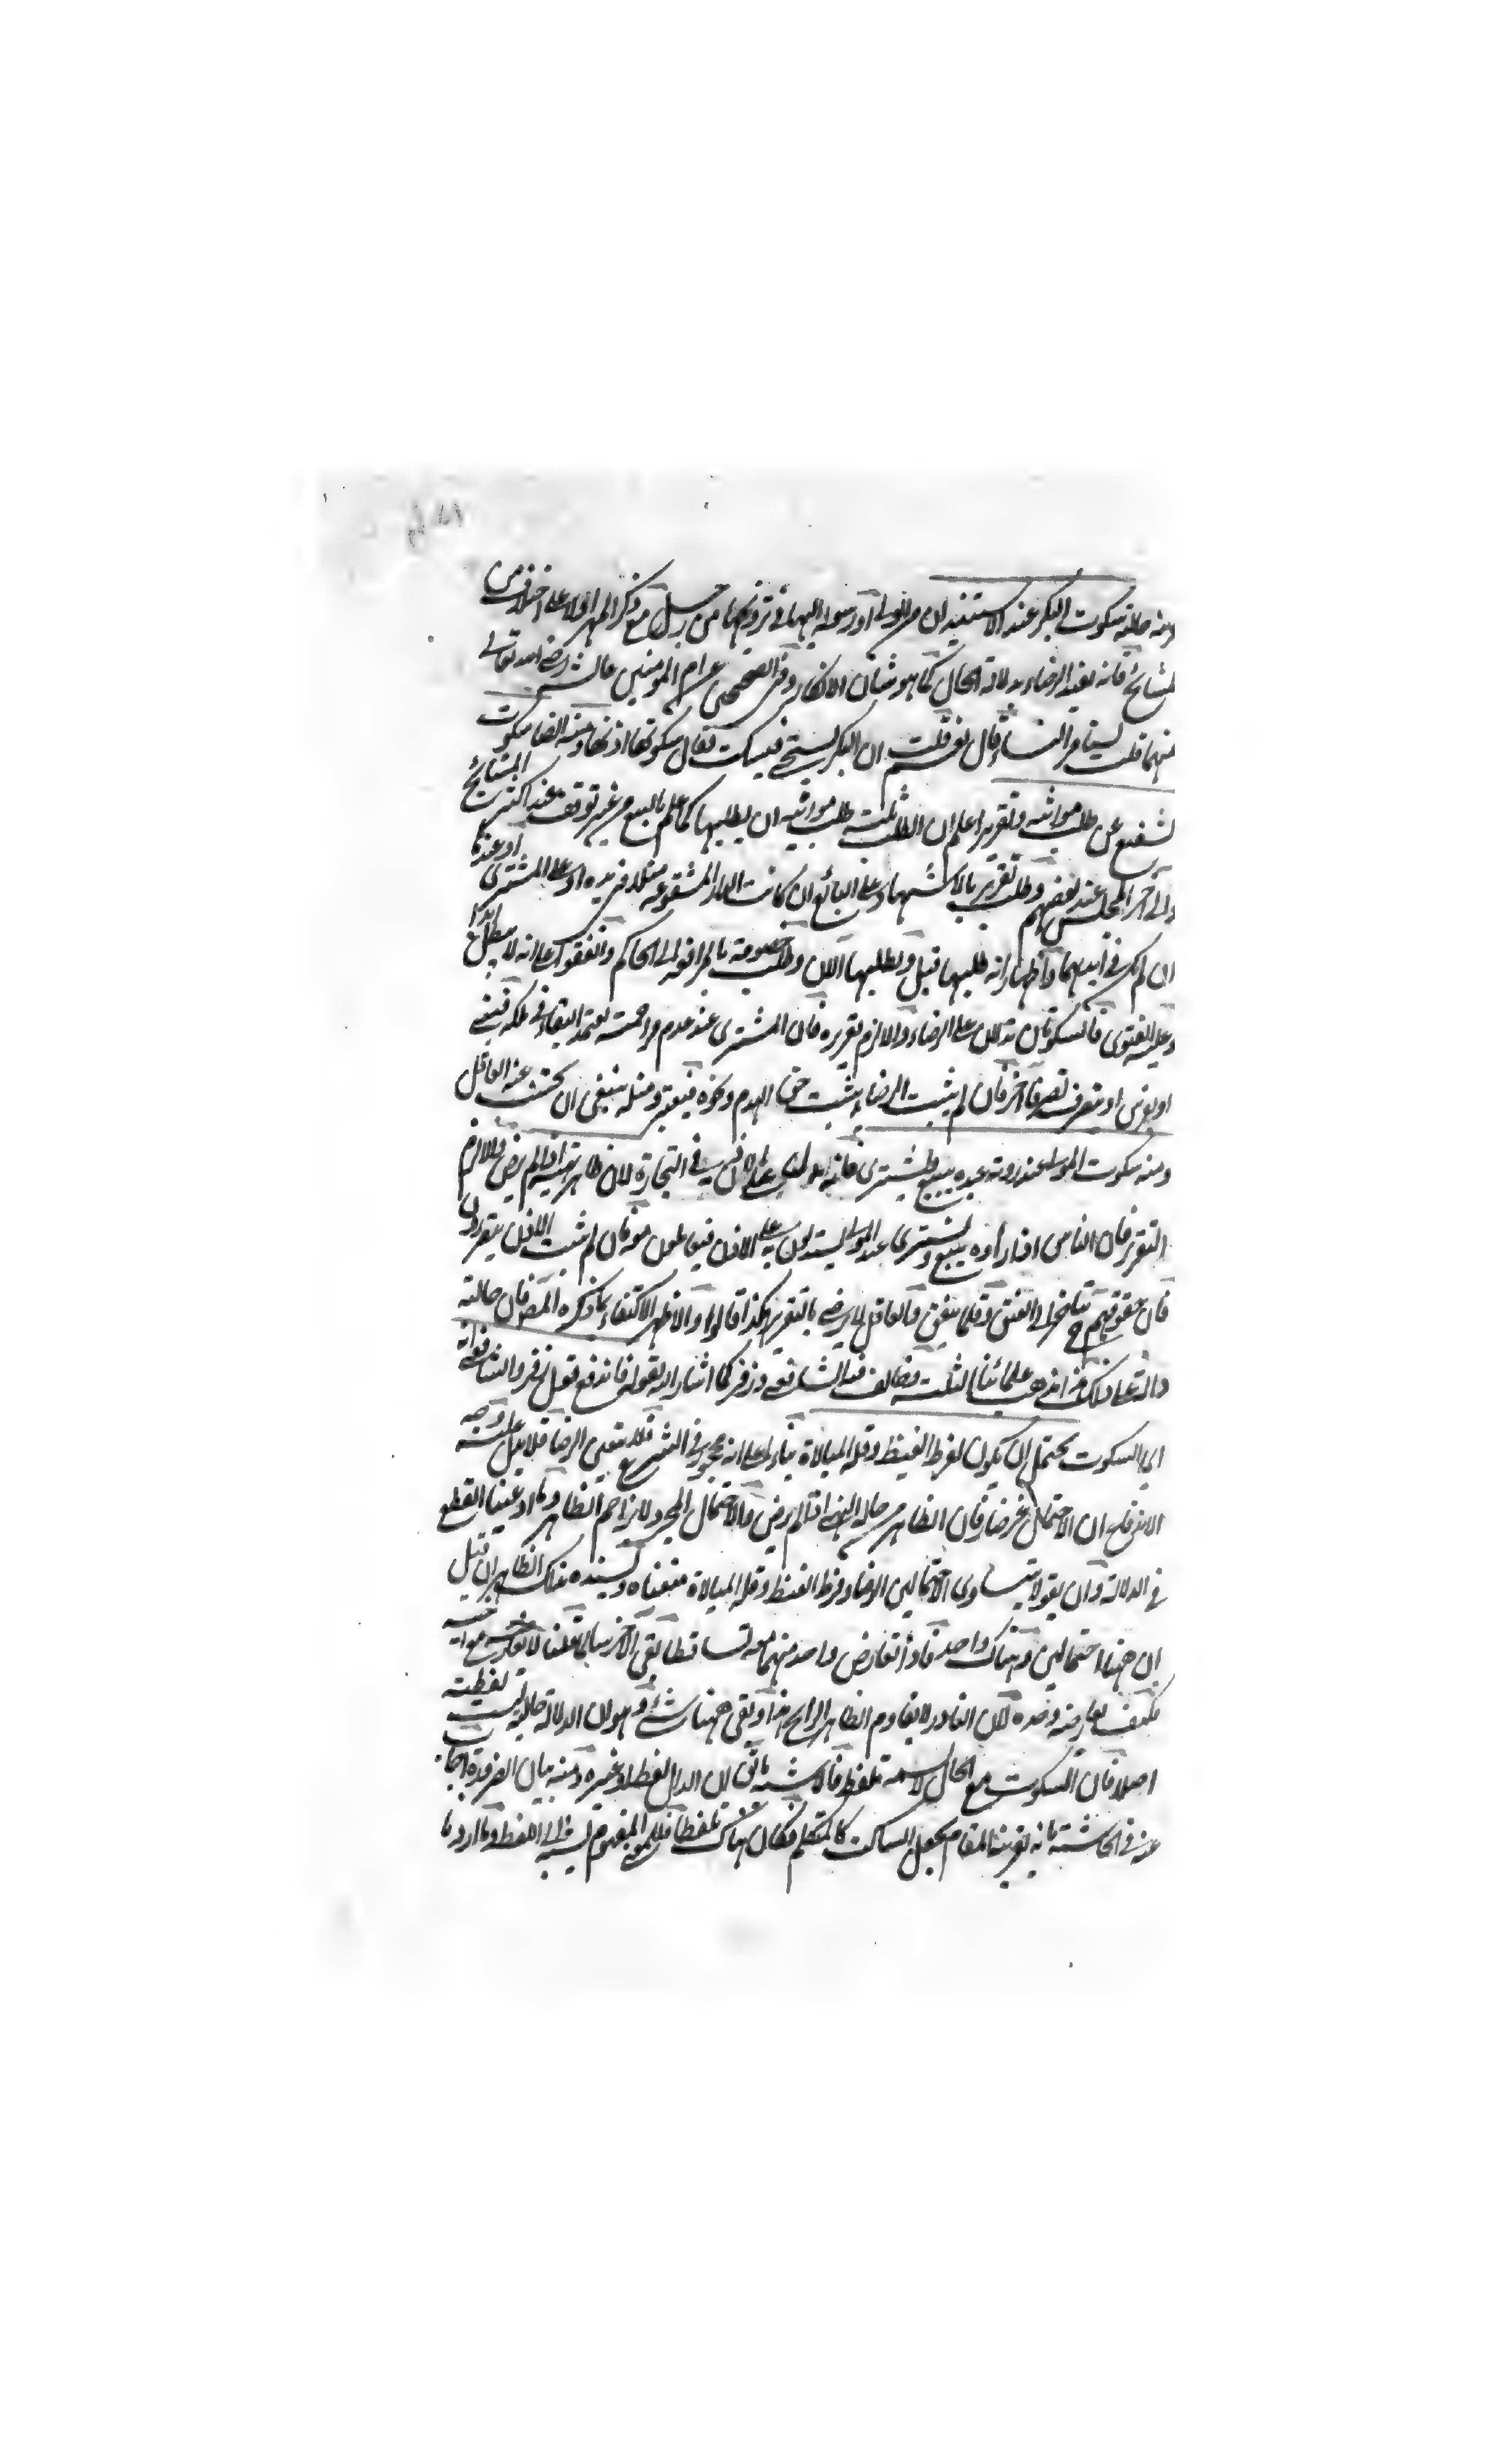 ومنه حالته سكوت البكر عند الاستيذان من الولى او رسوله اليها فى تزويجها من رجل مع ذكر المهر اولا على اختلاف من
المشائخ فانه يفيد الرضاء بدلالة الحال كما هو شان الانكار وفى الصحيحين عن ام المؤمنين عائشة رضى الله تعالى
عنهما قلت يستامر النساء قال نعم قلت ان البكر تستحى فيسكت فقال سكوتها اذنها ومنه ايضا سكوت
الشفيع عن طلب مواثبة وتقرير اعلم ان الطلب ثلثة طلب مواثبة ان يطلبها كما علم بالبيع من غير توقف عند اكثر المشائخ
والى آخر المجلس عند بعضهم وطلب تقرير بالاشهاد على البائع ان كانت الدار المشفوعة فى يده او على المشترى او عندها
ان لم يكن فى ايديهما واظهار انه طلبها قبل ويطلبها الآن وطلب خصومة بالمرافعة الى الحاكم واتفقوا على انه لا يبطل ابدا
وعليه الفتوى فالسكوتان تدلان على الرضاء والا لزم تغريره فان المشترى عند عدم مزاحمته يعتمد البقاء فى ملكه فيبنى
او يغرس او يتصرف تصرفا آخر فان لم يثبت الرضاء يثبت حق الهدم ونحوه فيتضرر ومثله ينبغى ان يجتنب عنه العاقل
ومنه سكوت المولى عند رؤية عبده يبيع ويشترى فانه يدل على الاذن فى التجارة لان ظاهر نهيه اذا لم يرض والا لزم
التغرير فان الناس اذا رأوه يبيع ويشترى عند المولى يستدلون به على الاذن فيعاملون معه فان لم يثبت الاذن يتضررون
فان حقوقهم ح تتأخر الى العتق وقلما يتفق والعاقل لا يرضى بالتغرير هكذا قالوا والاظهر الاكتفاء بما ذكره المصنف فان حالته
دالة على ذلك هذا مذهب علمائنا الثلثة وخالف فيه الشافعى وزفر كما اشار اليه بقوله فاندفع قول زفر والشافعى انه
اى السكوت يحتمل ان يكون لفرط الغيظ وقلة المبالاة بناء على انه محجور فى الشرع فلا يتعين الرضا فلا يدل عليه وجه
الاندفاع ان الاحتمال غير ضار فان الظاهر من حاله النهى اذا لم يرض والاحتمال المجرد لا يزاحم الظاهر وما ادعينا القطع
فى الدلالة وان يقولا بتساوى الاحتمالين الرضا وفرط الغيظ وقلة المبالاة منعناه وسنده ذلك الظاهر ان قيل
ان ههنا احتمالين وهناك واحد فاذا تعارض واحد منهما معه تساقطا بقى الآخر سالما قلنا لا تعارض مواليه
فكيف يعارضه وضده لان النادر لا يقاوم الظاهر الراجح هذا وبقى ههنا شئ وهو ان الدلالة حالية ليست لفظية
اصلا فان السكوت مع الحال لا يسمى تلفظا فالاشبه ما قيل ان الدال لفظ او غيره ومنه بيان الضرورة اجاب
عنه فى الحاشية بانه بقرينة المقام يجعل الساكت كالمتكلم فكان هناك تلفظا فالمعنى المفهوم ينسب الى اللفظ واما اوردنا